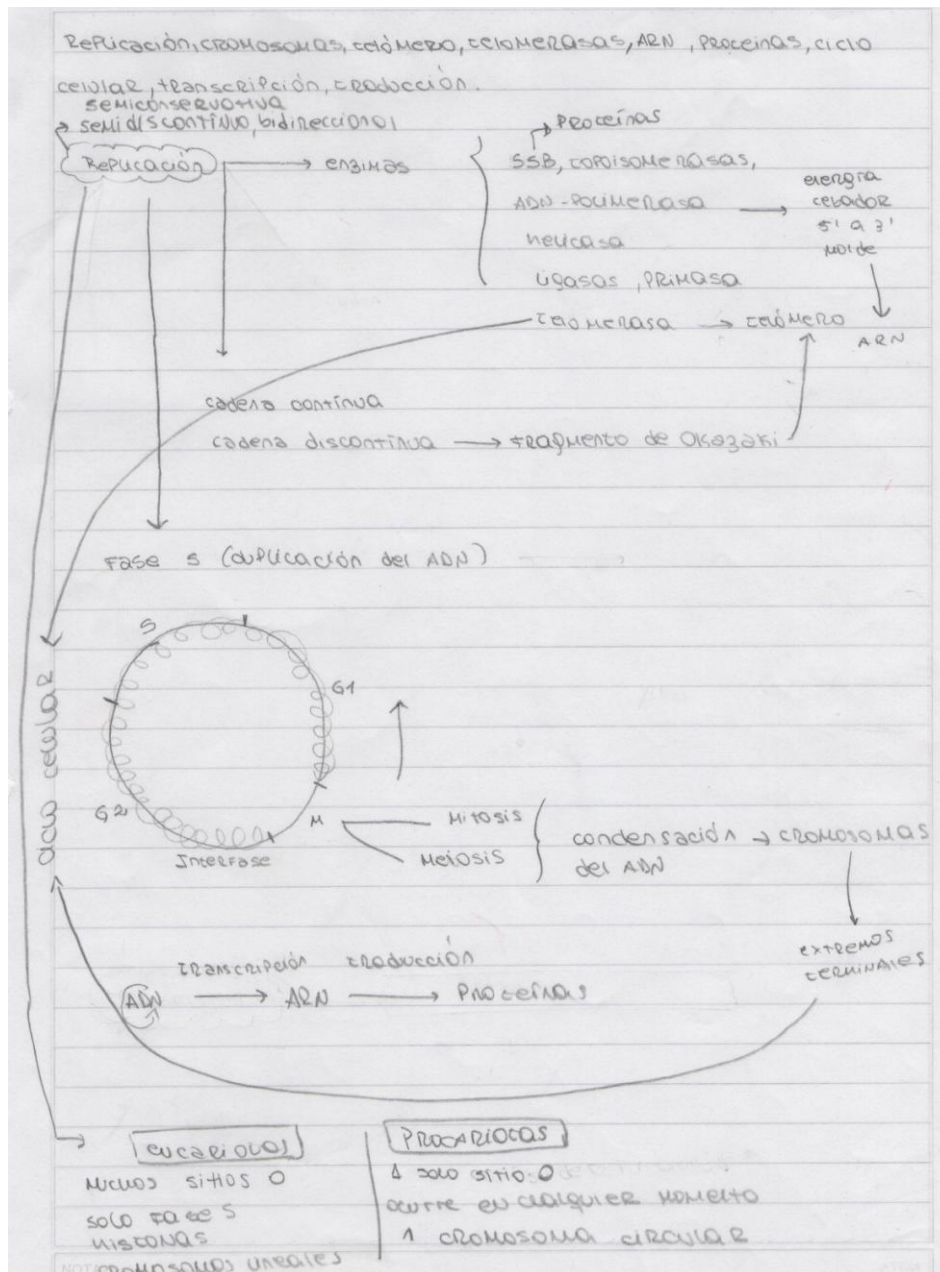 Replicación, cromosomas, telómero, telomerasas, ARN, proteinas, ciclo
celular, transcripción, traducción.
semiconservativa
semidiscontínuo, bidireccional
Replicación
enzimas
Proteínas
SSB, topoisomerasas,
ADN-Polimerasa
helicasa
ligasas, Primasa
telomerasa
telómero
energía
cebador
5' a 3'
molde
ARN
cadena contínua
cadena discontínua
fragmento de Okazaki
Fase S (duplicación del ADN)
ciclo celular
S
G1
G2
M
Interfase
Mitosis
Meiosis
condensación → cromosomas
del ADN
extremos
terminales
transcripción traducción
ADN → ARN → Proteínas
eucariotas
muchos sitios O
solo fase S
histonas
cromosomas lineales
Procariotas
1 solo sitio O
ocurre en cualquier momento
1 cromosoma circular